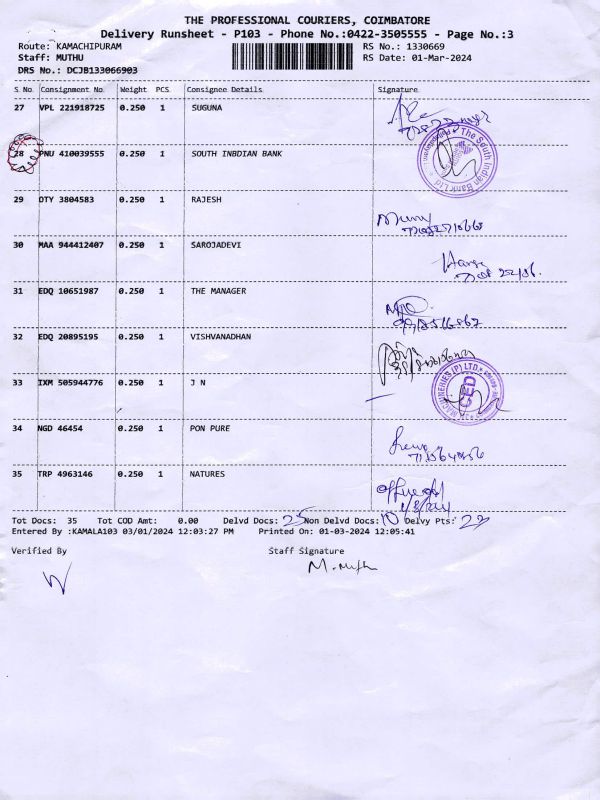 THE PROFESSIONAL COURIERS, COIMBATORE
Delivery Runsheet - P103 - Phone No.:0422-3505555 - Page No.:3
Route: KAMACHIPURAM RS No.: 1330669
Staff: MUTHU RS Date: 01-Mar-2024
DRS No.: DCJB133066903
S No Consignment No. Weight PCS Consignee Details Signature
27 VPL 221918725 0.250 1 SUGUNA
28 PNU 410039555 0.250 1 SOUTH INBDIAN BANK
The South Indian Bank Ltd
29 OTY 3804583 0.250 1 RAJESH
30 MAA 944412407 0.250 1 SAROJADEVI
31 EDQ 10651987 0.250 1 THE MANAGER
32 EDQ 20895195 0.250 1 VISHVANADHAN
33 IXM 505944776 0.250 1 J N
MACHINERIES (P) LTD.
34 NGD 46454 0.250 1 PON PURE
35 TRP 4963146 0.250 1 NATURES
Tot Docs: 35 Tot COD Amt: 0.00 Delvd Docs: 25 Non Delvd Docs: 10 Delvy Pts: 22
Entered By :KAMALA103 03/01/2024 12:03:27 PM Printed On: 01-03-2024 12:05:41
Verified By Staff Signature
M. Muth